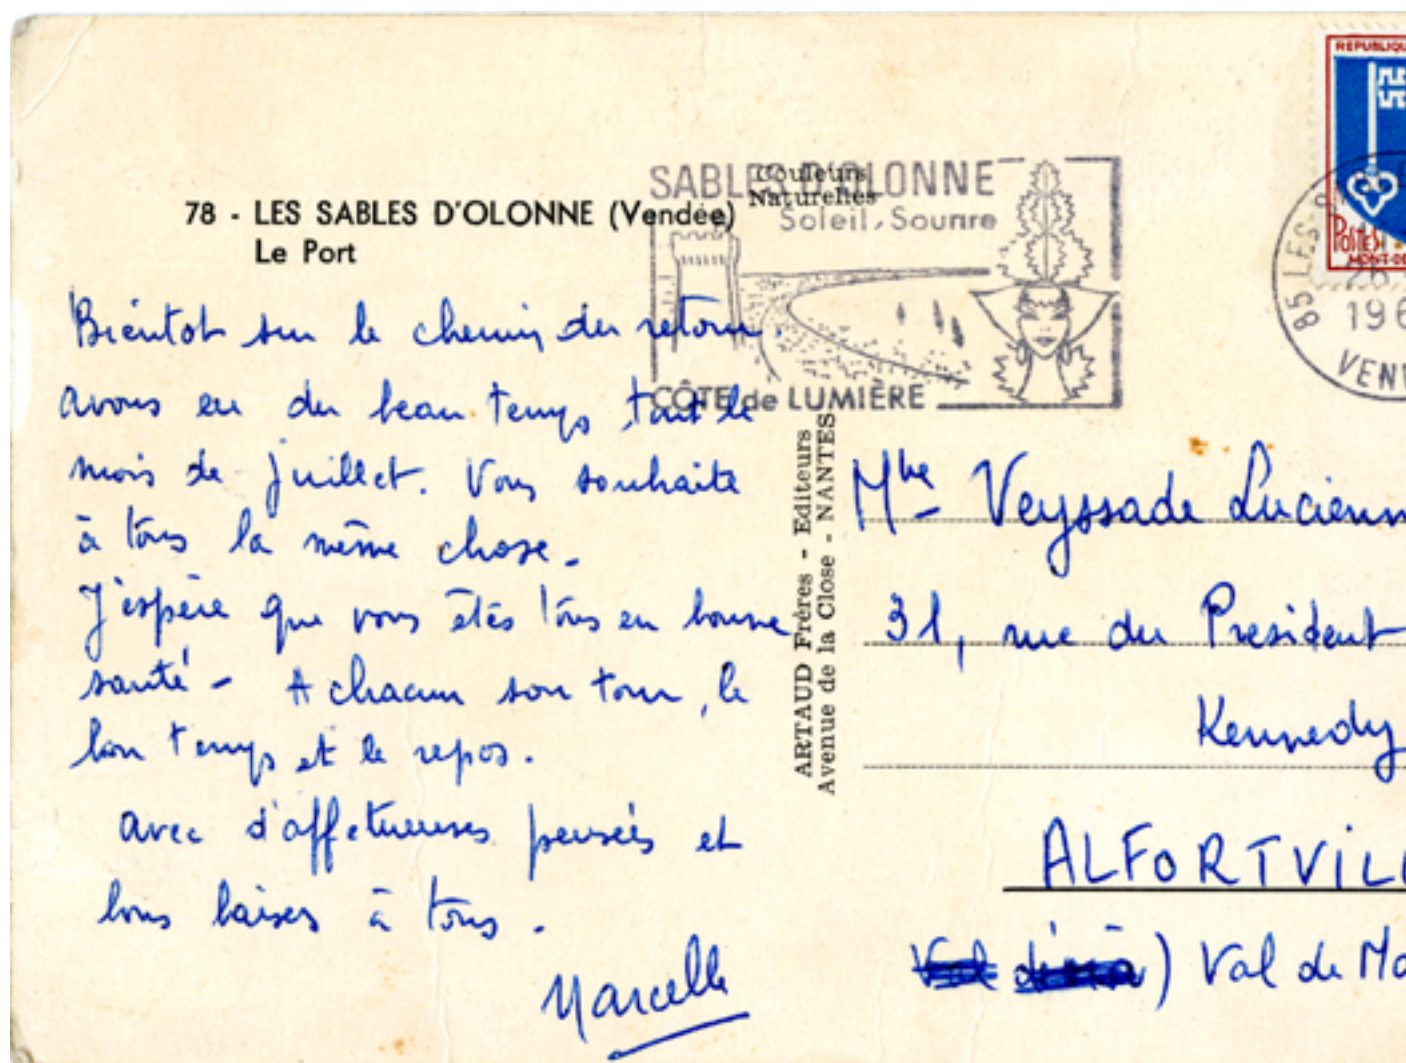 78 - LES SABLES D'OLONNE (Vendée)
Le Port
Couleurs
Naturelles
SABLES D'OLONNE
Soleil, Sourire
CÔTE de LUMIÈRE
REPUBLIQU
POSTES
MONT-DE
85 LES
26
196
VEN
Bientot sur le chemin du retour.
avons eu du beau temps tout le
mois de juillet. Vous souhaite
à tous la même chose.
J'espère que vous êtes tous en bonne
santé - A chacun son tour, le
bon temps et le repos.
avec d'affetueuses pensées et
bons baisers à tous.
Marcelle
ARTAUD Frères - Editeurs
Avenue de la Close - NANTES
Veyssade Lucienn
31, rue du President
Kennedy
ALFORTVIL
) Val de Ma